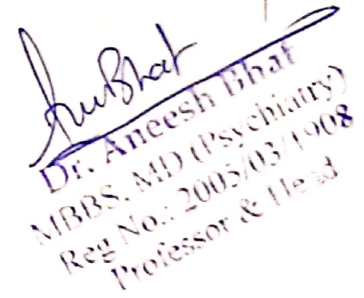 AnuBhat
Dr. Aneesh Bhat
MBBS, MD (Psychiatry)
Reg No.: 2005/03/1908
Professor & Head